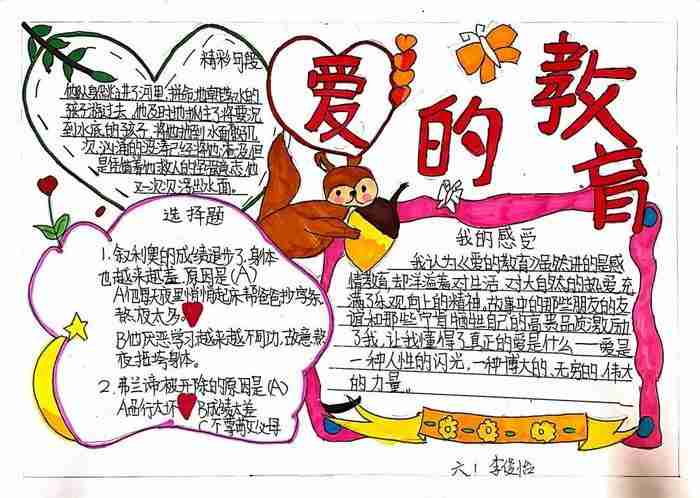 爱的教育
精彩句段
他纵身跳进了河里,拼命地朝落水的
孩子游过去,他及时地抓住了将要沉
到水底的孩子,将他拖到水面
次汹涌的波涛已经将他淹没,但
是凭借着他救人的坚强意志,他
又一次次浮出水面。
选择题
1.叙利奥的成绩退步了,身体
也越来越差,原因是(A)
A他每天夜里悄悄起床帮爸爸抄写条
B他厌恶学习越来越不用功,故意熬
夜拖垮身体。
2.弗兰谛被开除的原因是(A)
A品行太坏 B成绩太差
C不尊重父母
我的感受
我认为《爱的教育》虽然讲的是感
情教育,却洋溢着对生活、对大自然的热爱,充
满了乐观向上的精神,故事中的那些朋友的友
谊和那些宁肯牺牲自己的高贵品质激励
了我,让我懂得了真正的爱是什么——爱是
一种人性的闪光,一种博大的、无穷的、伟大
的力量。
六1 李俊怡